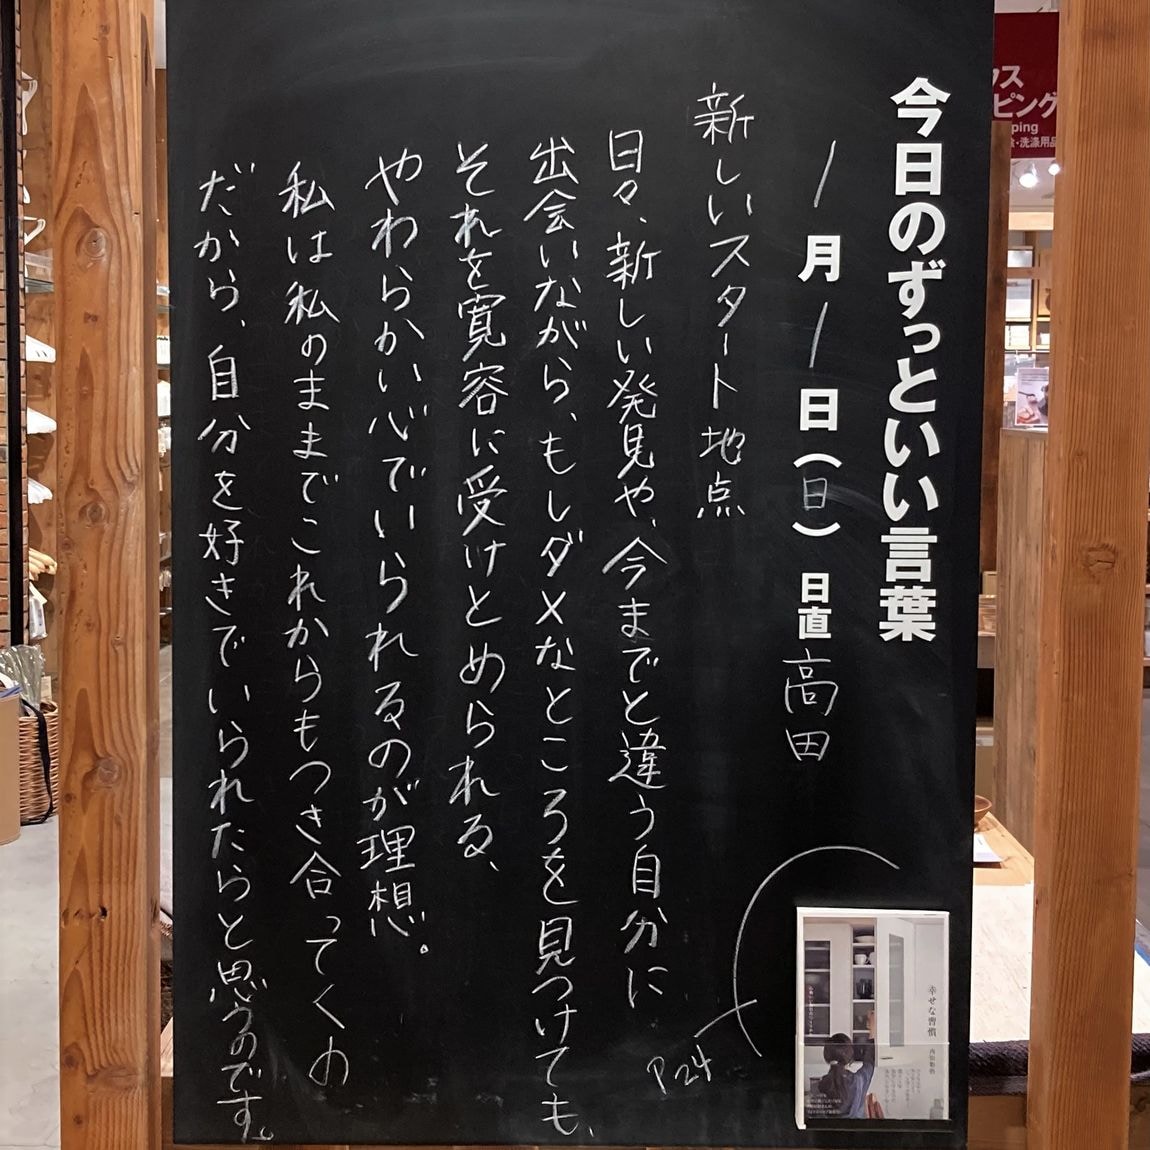 今日のずっといい言葉
1月1日(日) 日直 高田
新しいスタート地点
日々、新しい発見や、今までと違う自分に
出会いながら、もしダメなところを見つけても、
それを寛容に受けとめられる、
やわらかい心でいられるのが理想。
私は私のままでこれからもつき合ってくの
だから、自分を好きでいられたらと思うのです。
P24
幸せな習慣
クス
ピング
pping
食・洗滌用品